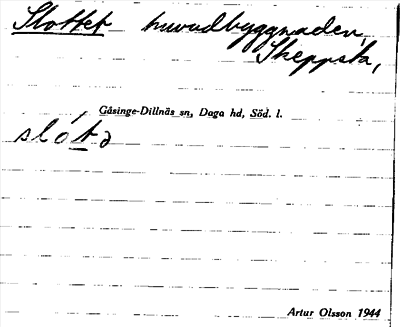 Slottet huvudbyggnaden,
Skeppsta,
Gåsinge-Dillnäs sn, Daga hd, Söd. l.
slótə
Artur Olsson 1944